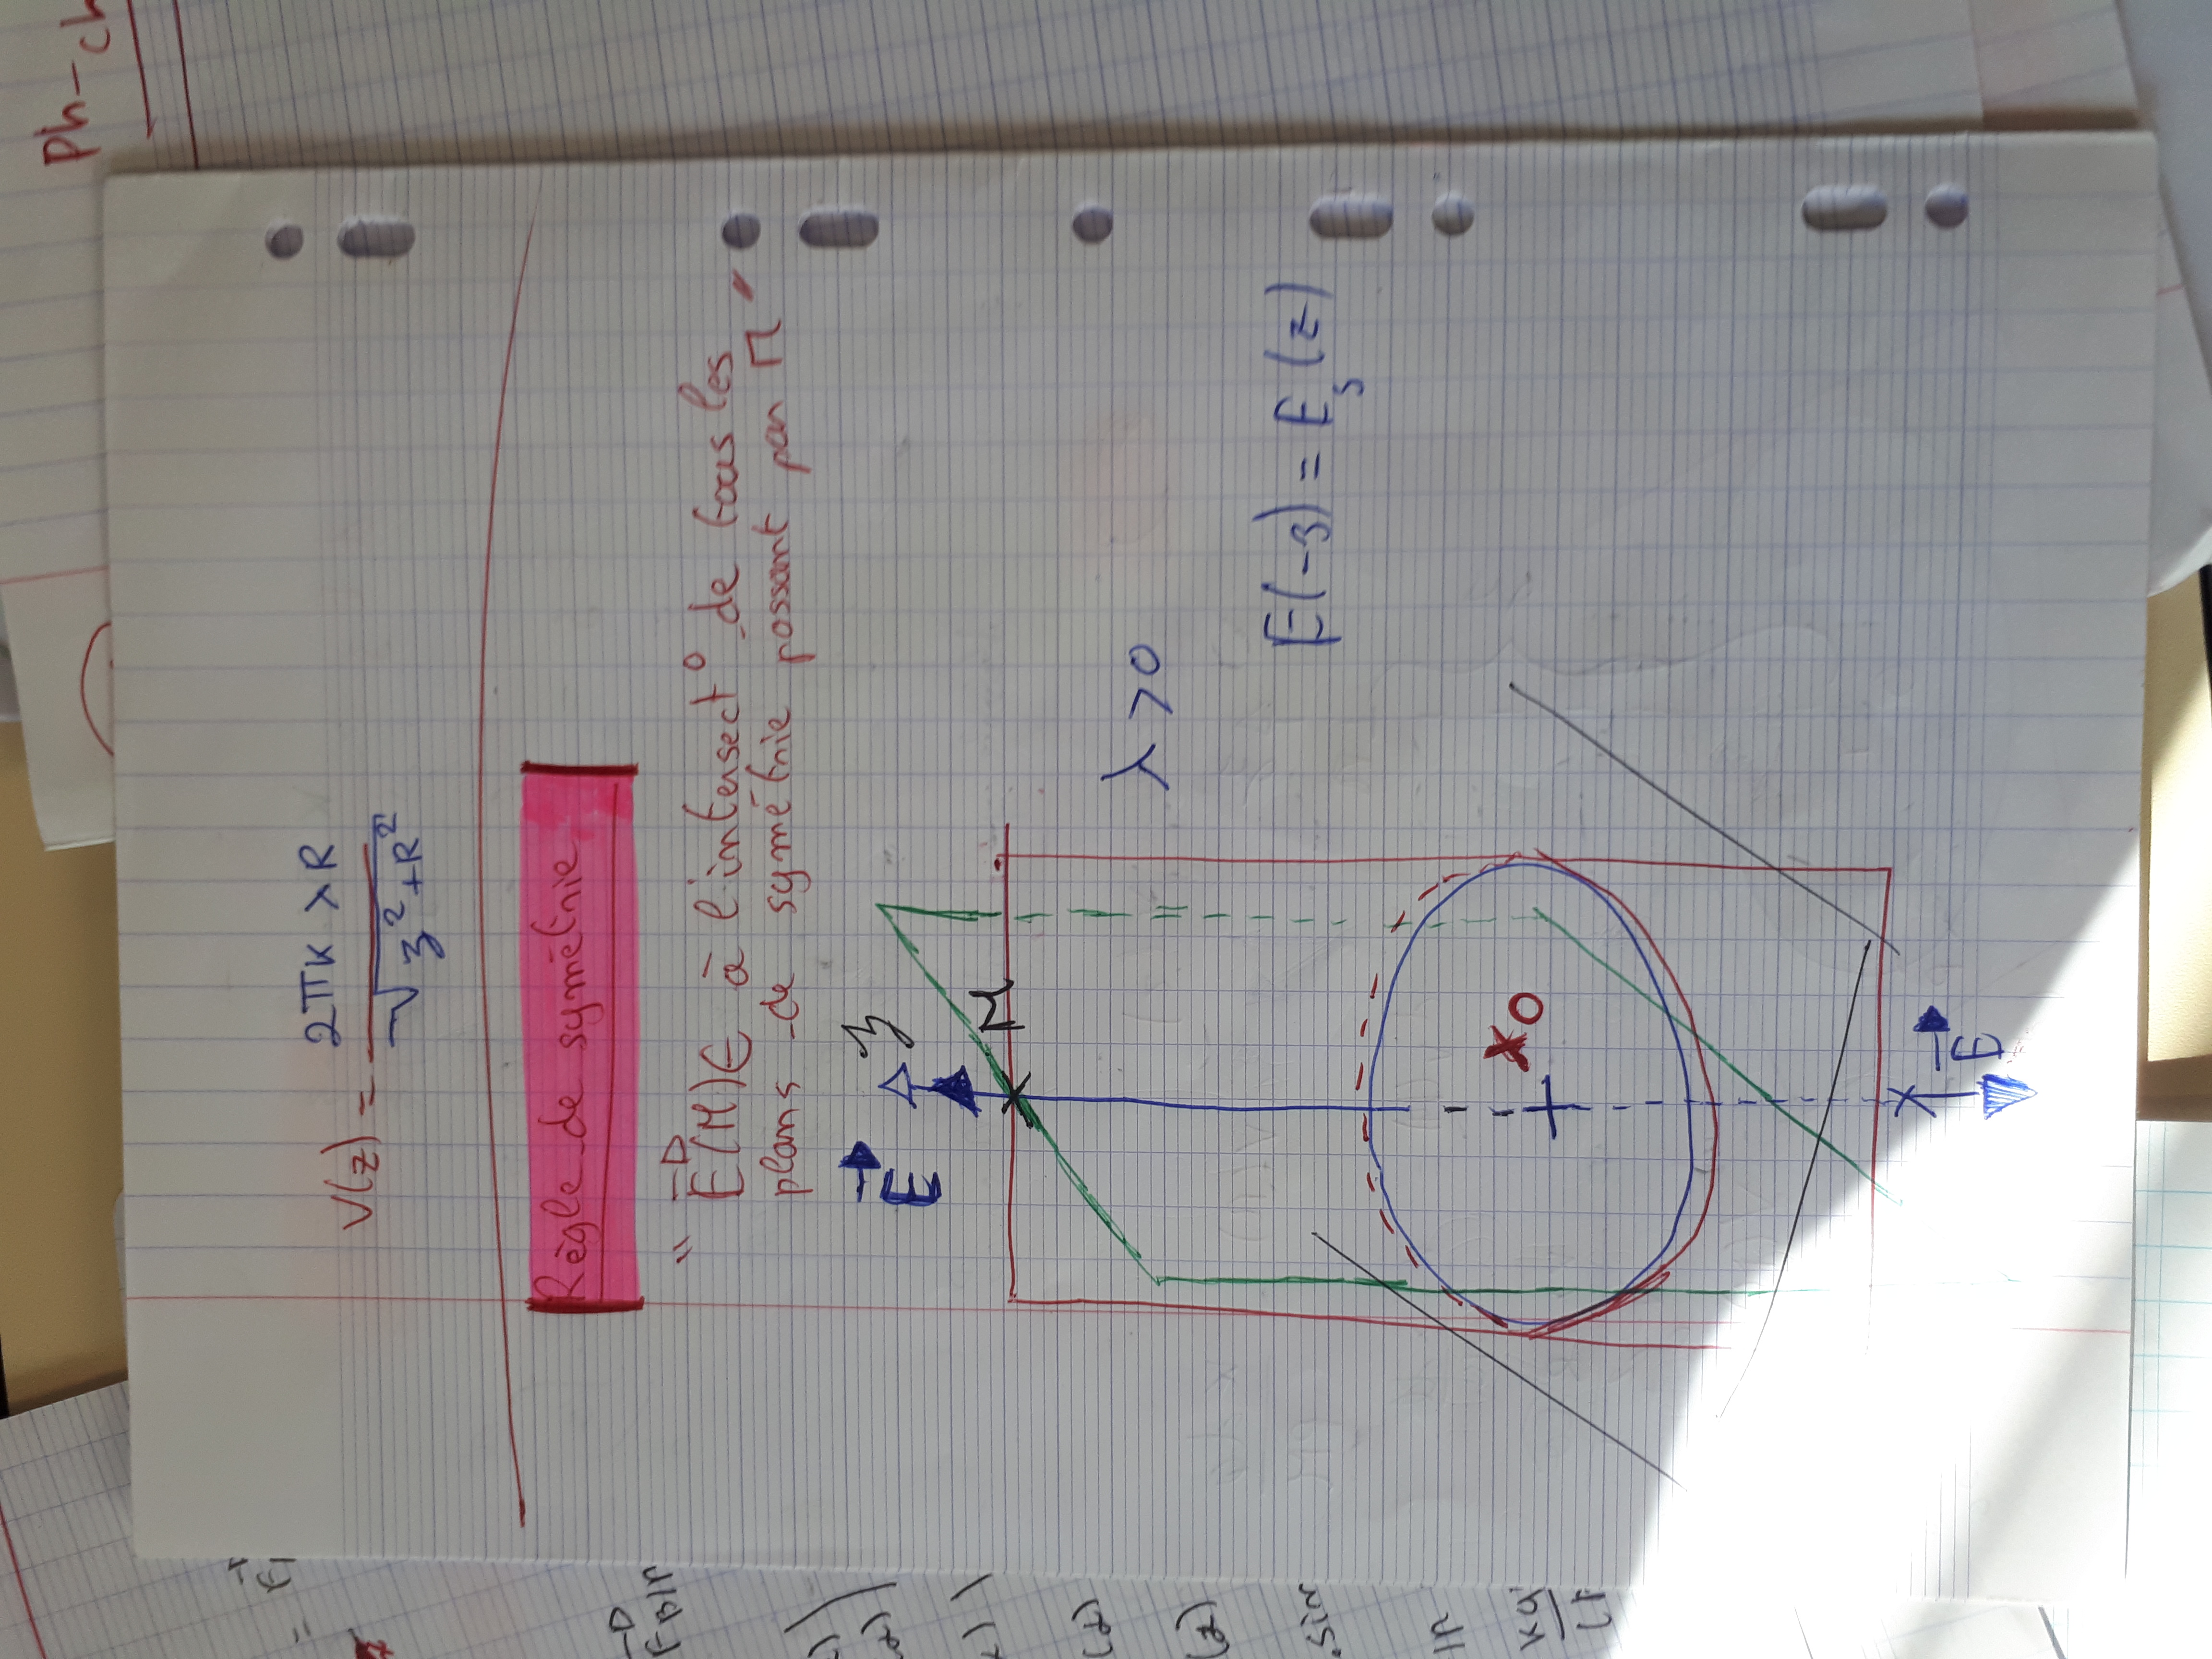 Ph-ch
V(z) = 2πKλR / √(z²+R²)
Règle de symétrie
" E(M) ∈ à l'intersect° de tous les
plans de symétrie passant par M "
E
z
M
λ > 0
E(-z) = E_s(z)
O
E